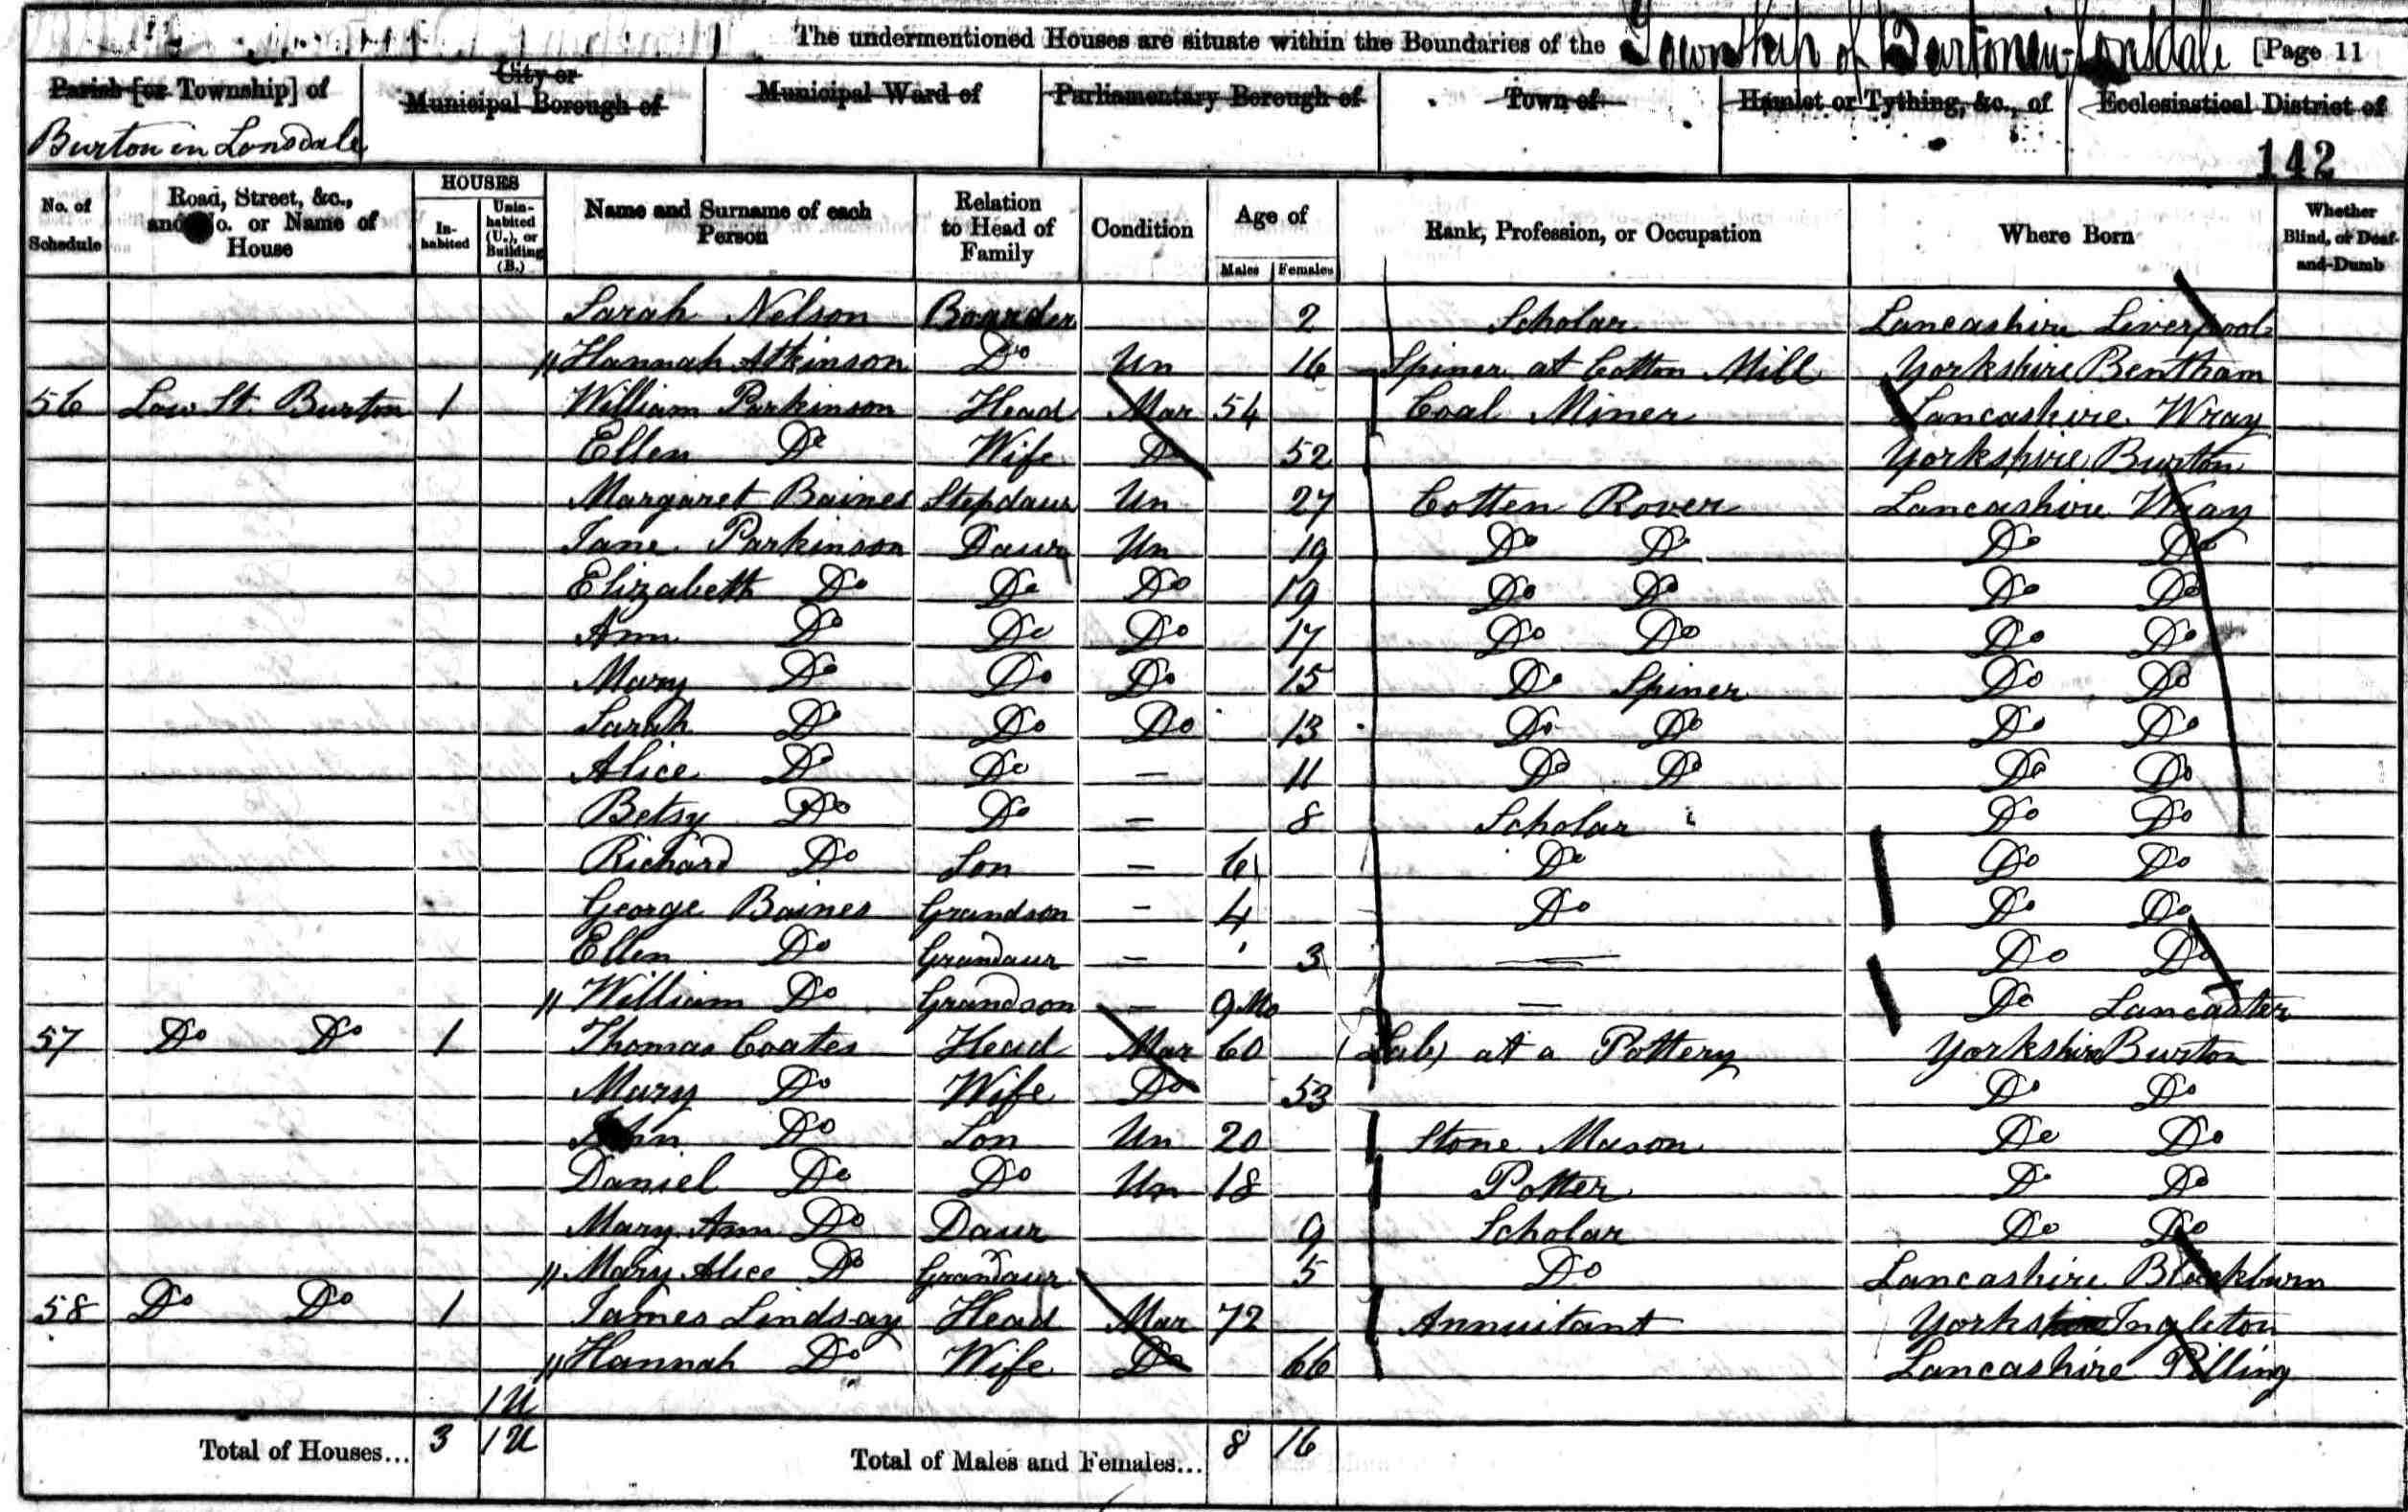 The undermentioned Houses are situate within the Boundaries of the Township of Burton in Lonsdale [Page 11
Parish [or Township] of
City or Municipal Borough of
Municipal Ward of
Parliamentary Borough of
Town of
Hamlet or Tything, &c., of
Ecclesiastical District of
Burton in Lonsdale
142
No. of Schedule
Road, Street, &c., and No. or Name of House
HOUSES
In-habited
Unin-habited (U.), or Building (B.)
Name and Surname of each Person
Relation to Head of Family
Condition
Age of
Males Females
Rank, Profession, or Occupation
Where Born
Whether Blind, or Deaf-and-Dumb
Sarah Nelson Boarder 2 Scholar Lancashire Liverpool
" Hannah Atkinson Do Un 16 Spiner at Cotton Mill Yorkshire Bentham
56 Low St. Burton 1 William Parkinson Head Mar 54 Coal Miner Lancashire Wray
Ellen Do Wife Do 52 Yorkshire Burton
Margaret Baines Stepdaur Un 27 Cotten Rover Lancashire Wray
Jane Parkinson Daur Un 19 Do Do Do Do
Elizabeth Do Do Do 19 Do Do Do Do
Ann Do Do Do 17 Do Do Do Do
Mary Do Do Do 15 Do Spiner Do Do
Sarah Do Do Do 13 Do Do Do Do
Alice Do Do — 11 Do Do Do Do
Betsy Do Do — 8 Scholar Do Do
Richard Do Son — 6 Do Do Do
George Baines Grandson — 4 Do Do Do
Ellen Do Grandaur — 3 — Do Do
" William Do Grandson — 9 Mo — Do Lancaster
57 Do Do 1 Thomas Coates Head Mar 60 (Lab) at a Pottery Yorkshire Burton
Mary Do Wife Do 53 Do Do
John Do Son Un 20 Stone Mason Do Do
Daniel Do Do Un 18 Potter Do Do
Mary Ann Do Daur 9 Scholar Do Do
" Mary Alice Do Grandaur 5 Do Lancashire Blackburn
58 Do Do 1 James Lindsay Head Mar 72 Annuitant Yorkshire Ingleton
" Hannah Do Wife Do 66 Lancashire Pilling
1 U
Total of Houses... 3 1 U Total of Males and Females... 8 16